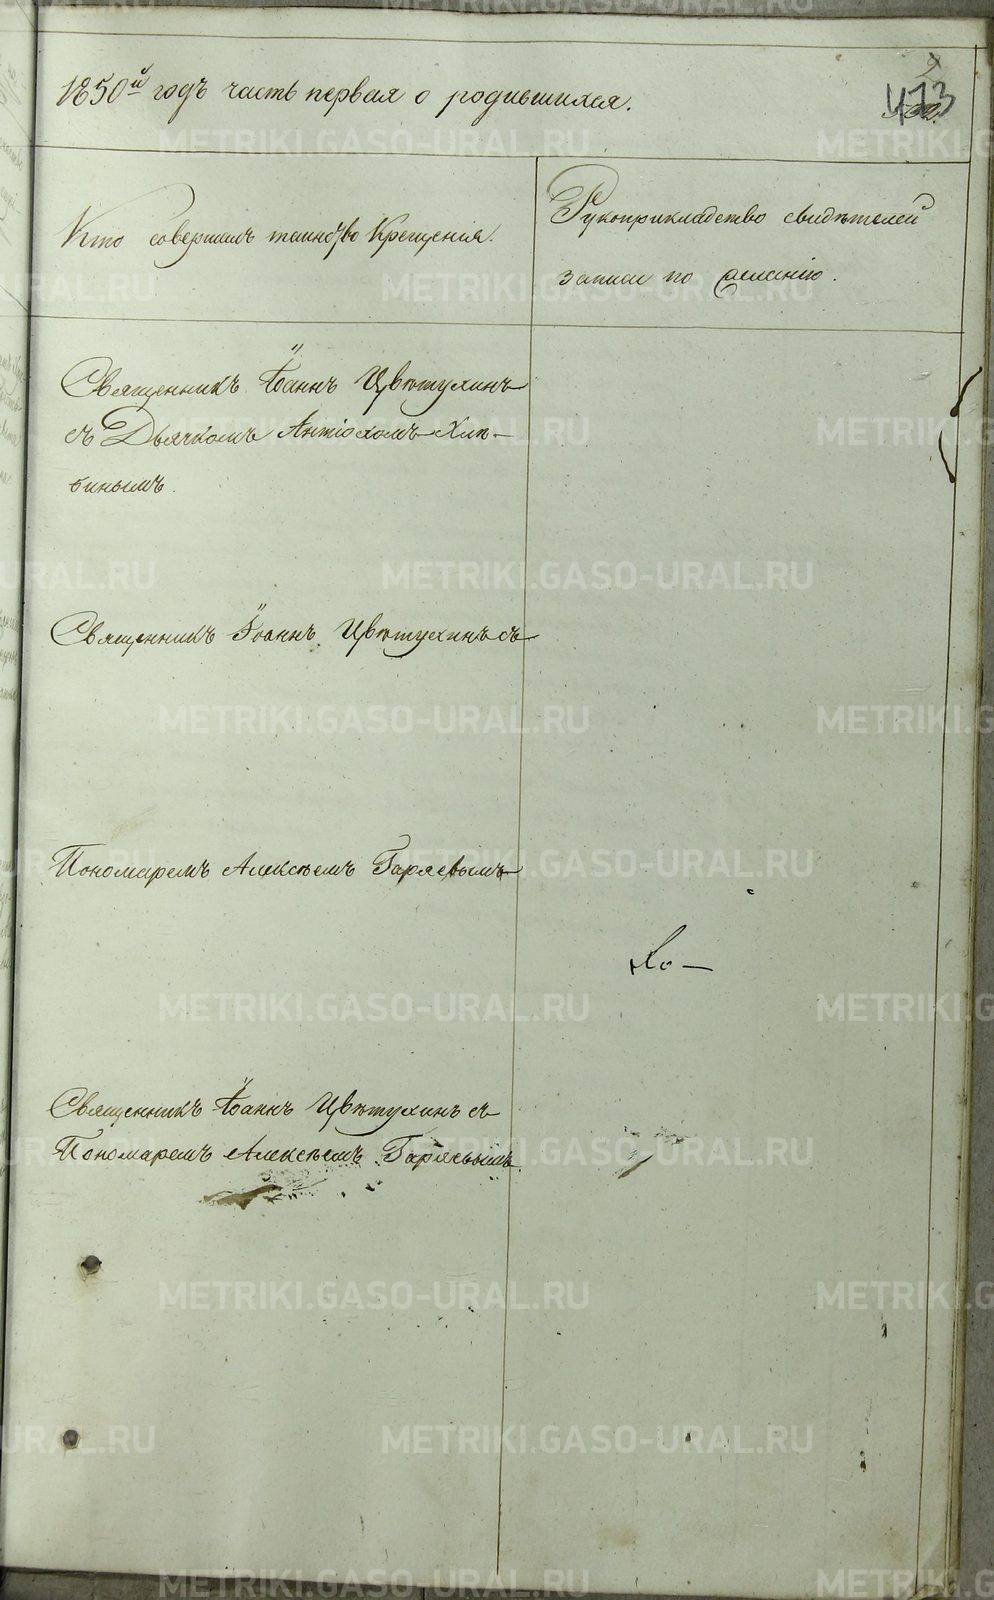 1850й годъ часть первая о родившихся.
473
Кто совершалъ таинство Крещенія.
Рукоприкладство свидѣтелей
записи по желанію.
Священникъ Іоаннъ Цвѣтухинъ
съ Дьячкомъ Антіохомъ Хлѣ-
бинымъ.
Священникъ Іоаннъ Цвѣтухинъ съ
Пономаремъ Алексѣемъ Гаряевымъ
Священникъ Іоаннъ Цвѣтухинъ съ
Пономаремъ Алексѣемъ Гаряевымъ.
METRIKI.GASO-URAL.RU